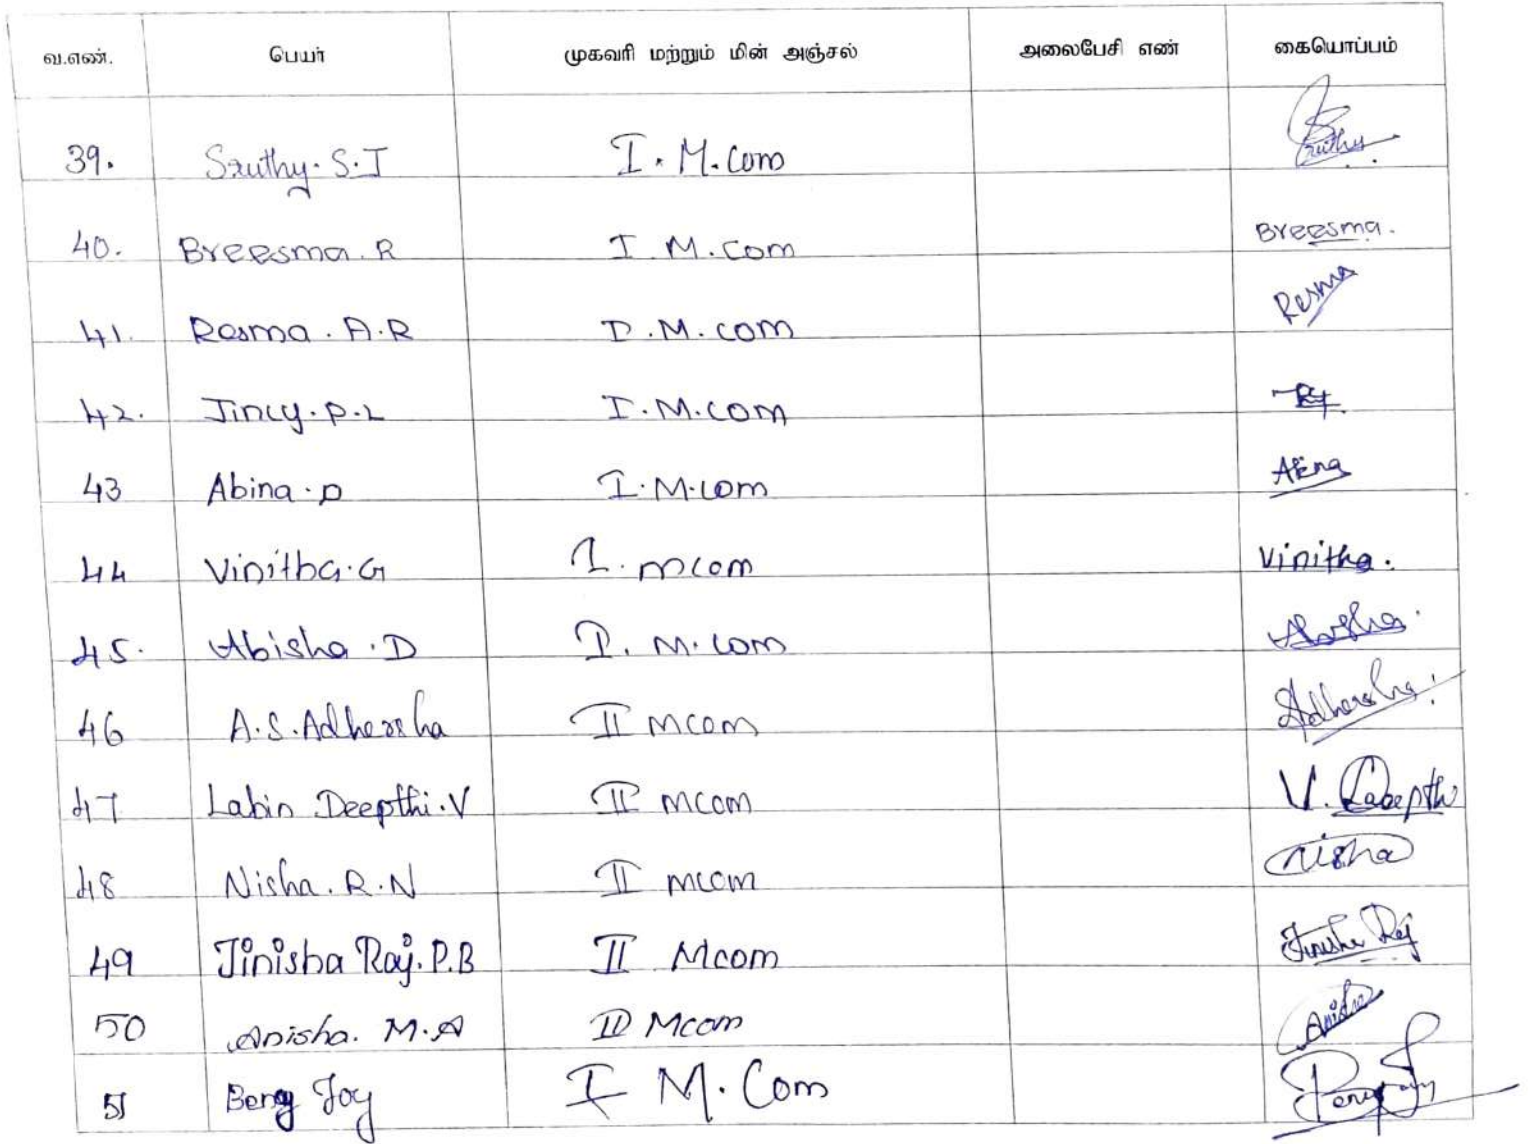 வ.எண். பெயர் முகவரி மற்றும் மின் அஞ்சல் அலைபேசி எண் கையொப்பம்
39. Sruthy. S.J I. M.Com
40. Breesma. R I M.Com Breesma.
41. Resma. A.R I.M.com Resma
42. Jincy.P.L I.M.COM
43 Abina.P I.M.com Abina
44 Vinitha.G I. mcom Vinitha.
45. Abisha.D I. M.com
46 A.S.Adhersha II mcom Adhersha
47 Labin Deepthi.V II mcom V.
48 Nisha.R.N II mcom Nisha
49 Jinisha Raj.P.B II Mcom Jinisha Raj
50 Anisha. M.A II Mcom Anisha
51 Joy I M.Com